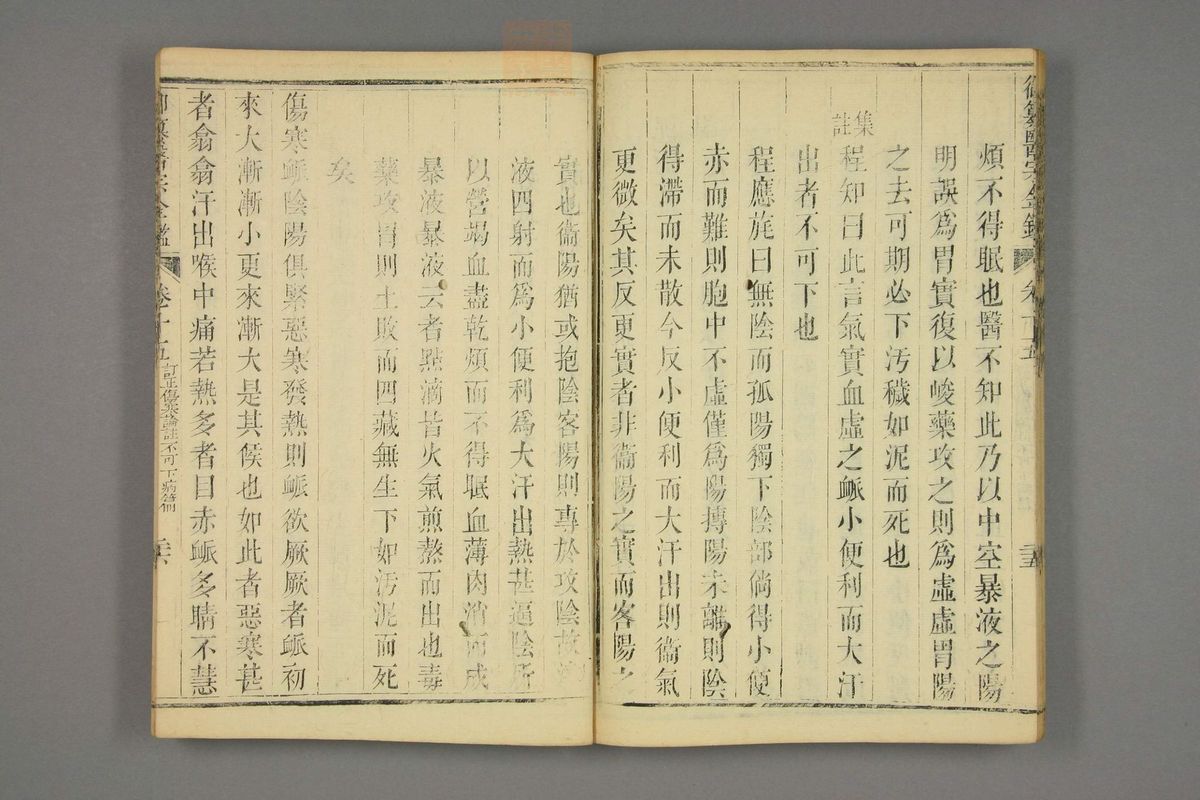 御纂醫宗金鑑 卷十五 二十五
煩不得眠也醫不知此乃以中空暴液之陽
明誤爲胃實復以峻藥攻之則爲虛虛胃陽
之去可期必下汚穢如泥而死也
集註
程知曰此言氣實血虛之脈小便利而大汗
出者不可下也
程應旄曰無陰而孤陽獨下陰部倘得小便
赤而難則胞中不虛僅爲陽摶陽未離則陰
得滯而未散今反小便利而大汗出則衞氣
更微矣其反更實者非衞陽之實而客陽之
實也衞陽猶或抱陰客陽則專於攻陰故
液四射而爲小便利爲大汗出熱甚逼陰所
以營竭血盡乾煩而不得眠血薄肉消而成
暴液暴液云者點滴皆火氣煎熬而出也毒
藥攻胃則土敗而四藏無生下如汚泥而死
矣
傷寒脈陰陽俱緊惡寒發熱則脈欲厥厥者脈初
來大漸漸小更來漸大是其候也如此者惡寒甚
者翕翕汗出喉中痛若熱多者目赤脈多睛不慧
御纂醫宗金鑑 卷十五 訂正傷寒論註不可下病篇 二十六